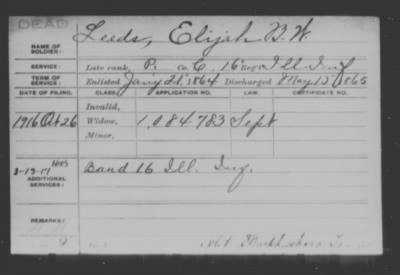 DEAD
Leeds, Elijah B. W.
NAME OF SOLDIER:
SERVICE: Late rank, P. Co. C, 16 Reg't Ill Inf
TERM OF SERVICE: Enlisted Jany 21, 1864 Discharged May 12, 1865
DATE OF FILING. CLASS. APPLICATION NO. LAW. CERTIFICATE NO.
Invalid,
1916 Oct 26 Widow, 1,084,783 Sept
Minor,
2-13-17 Band 16 Ill. Inf.
ADDITIONAL SERVICES:
REMARKS: